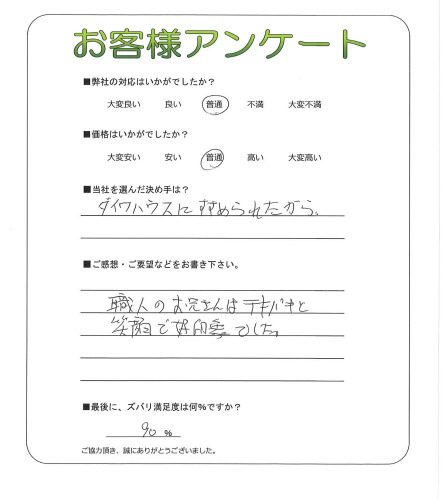 お客様アンケート
■弊社の対応はいかがでしたか？
大変良い 良い 普通 不満 大変不満
■価格はいかがでしたか？
大変安い 安い 普通 高い 大変高い
■当社を選んだ決め手は？
ダイワハウスにすすめられたから。
■ご感想・ご要望などをお書き下さい。
職人のお兄さんはテキパキと
笑顔で好印象でした。
■最後に、ズバリ満足度は何％ですか？
90 %
ご協力頂き、誠にありがとうございました。